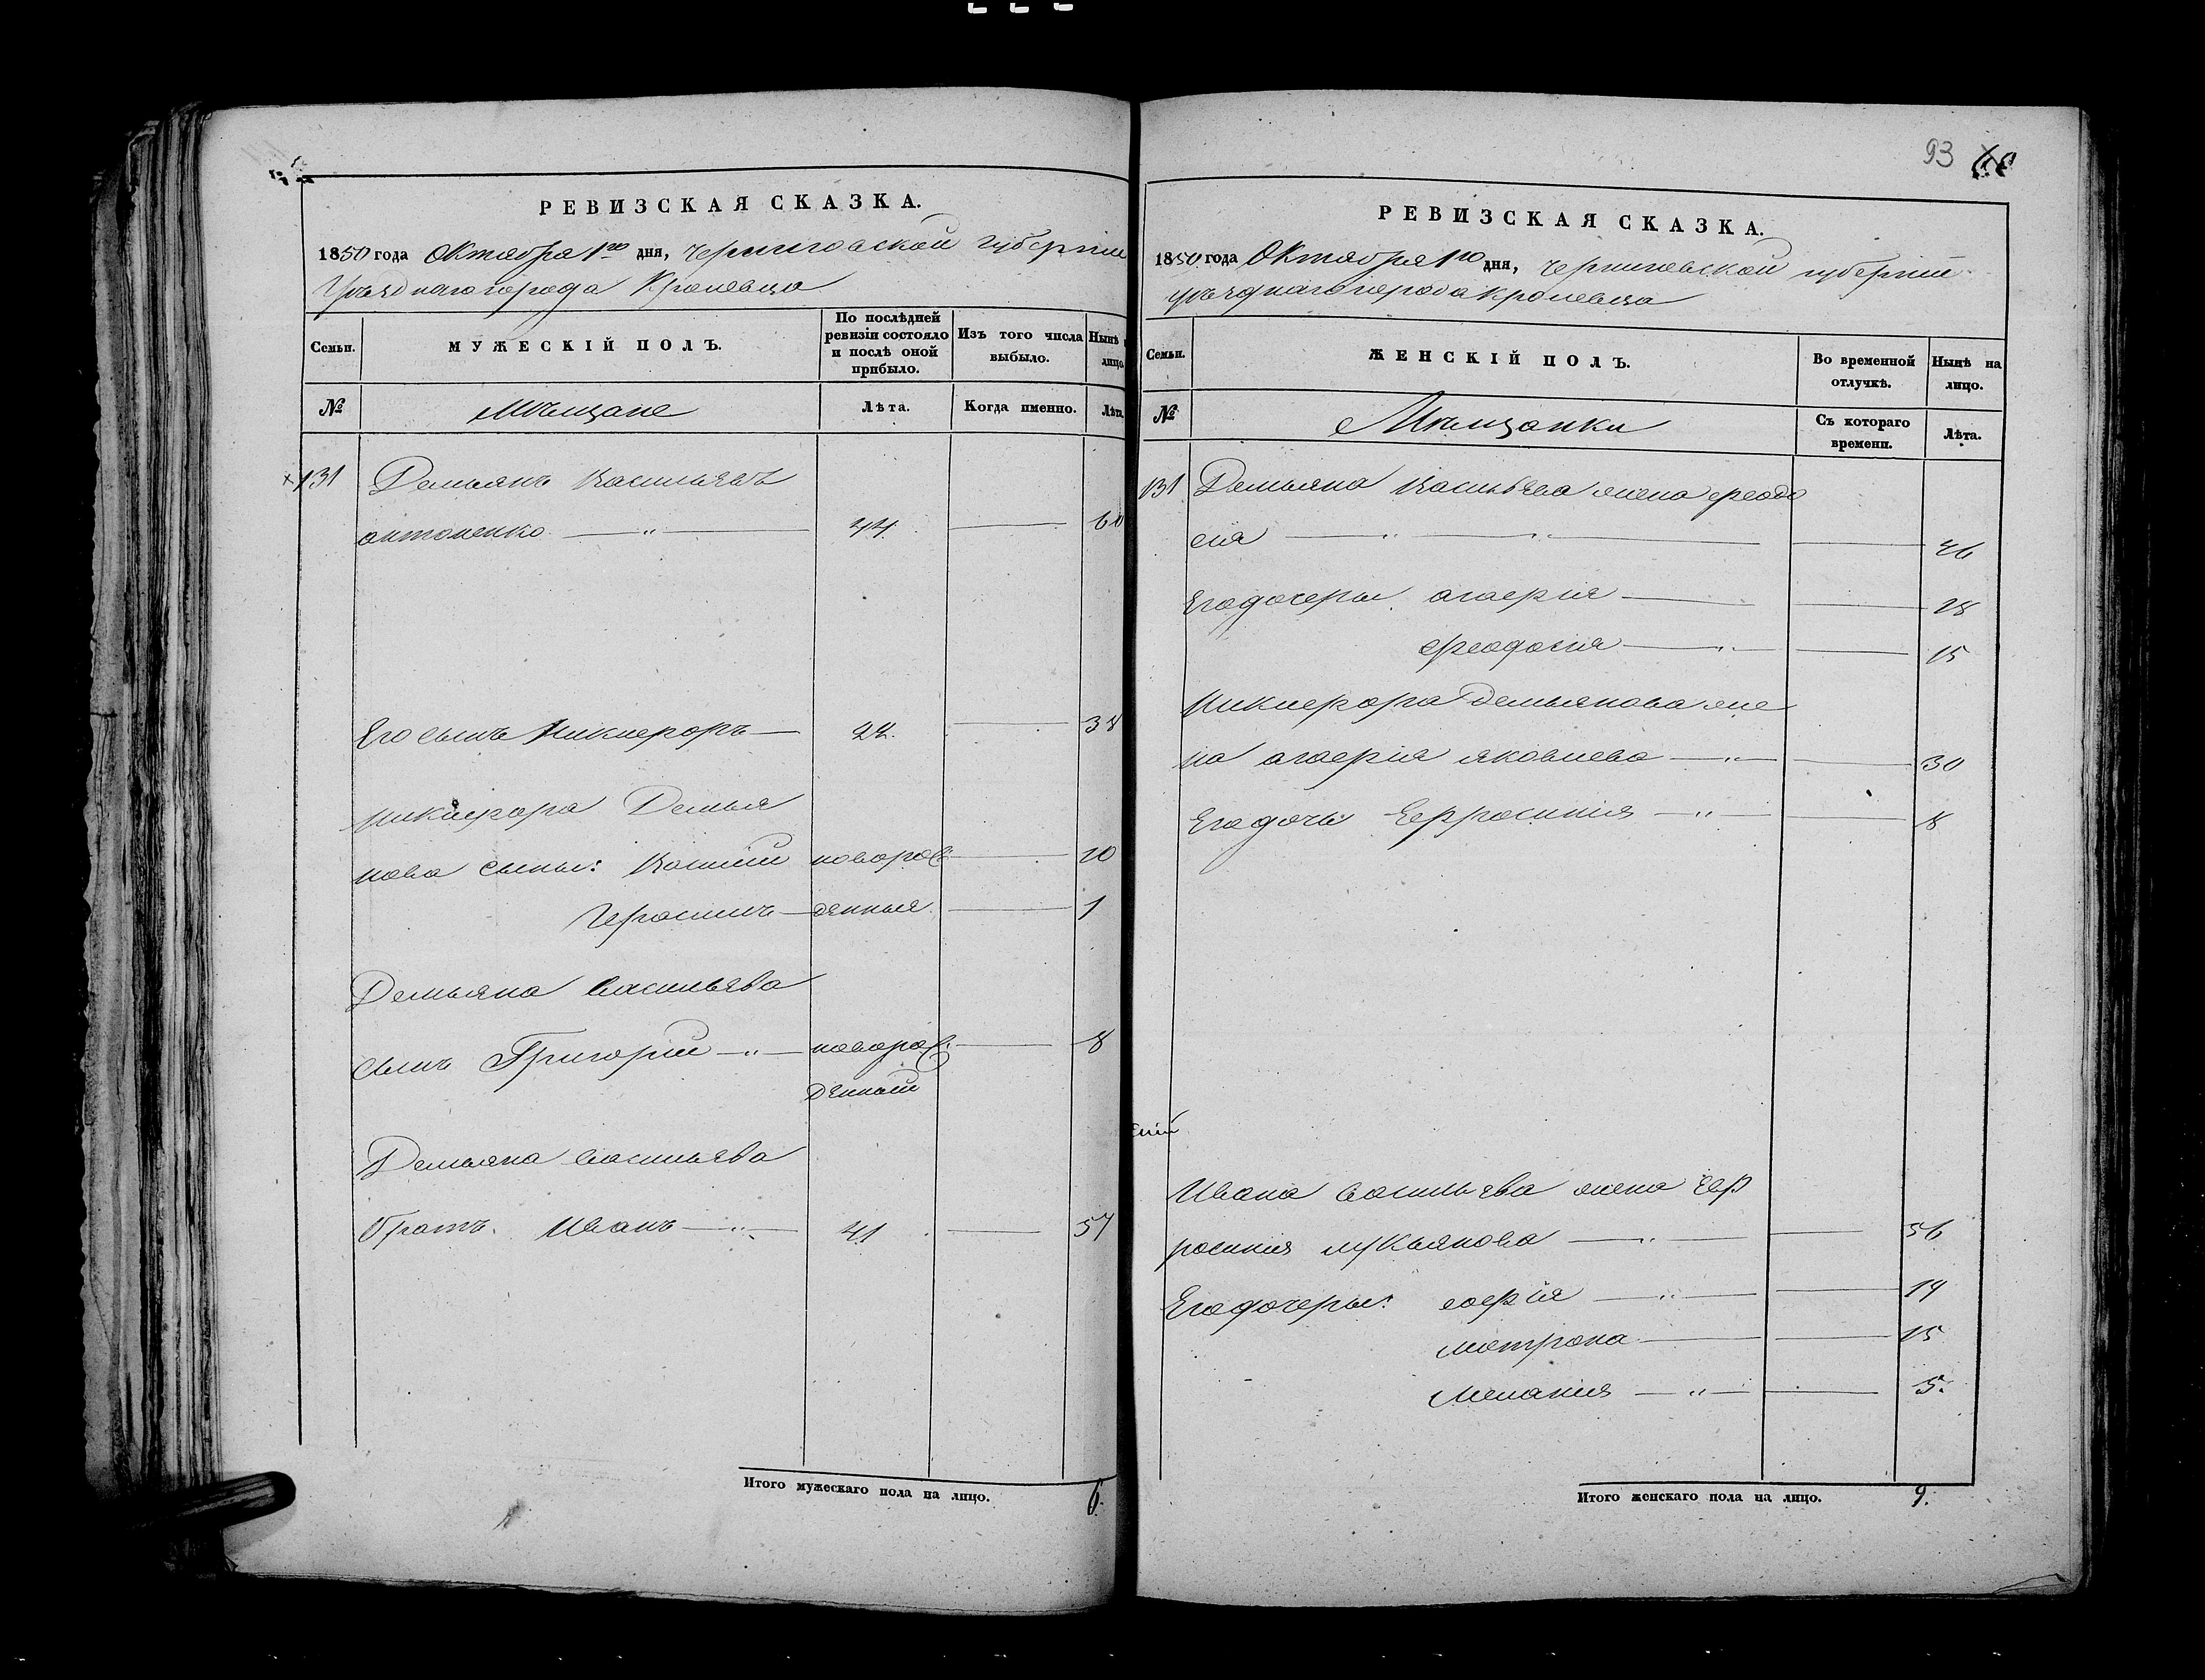 93
РЕВИЗСКАЯ СКАЗКА.
1850 года Октября 1го дня, Черниговской Губерніи
Уѣзднаго города Кролевца
Семьи.
МУЖЕСКІЙ ПОЛЪ.
По послѣдней ревизіи состояло и послѣ оной прибыло.
Изъ того числа выбыло.
Нынѣ
лицо
№
Мѣщане
Лѣта.
Когда именно.
Лѣта.
131 Демьянъ Васильевъ
Антоненко 44 60
Его сынъ Никифоръ 22 38
Никифора Демья
нова сыны: Василій новорож 10
Герасимъ денные 1
Демьяна Васильева
сынъ Григорій новорож 8
денный
Демьяна Васильева
братъ Иванъ 41 57
Итого мужескаго пола на лицо. 6.
РЕВИЗСКАЯ СКАЗКА.
1850 года Октября 1го дня, Черниговской губерніи
уѣзднаго города Кролевца
Семьи.
ЖЕНСКІЙ ПОЛЪ.
Во временной отлучкѣ.
Нынѣ на лицо.
№
Мѣщанки
Съ котораго времени.
Лѣта.
131 Демьяна Васильева жена Феодо
сія 46
Его дочери Агафія 18
Феодосія 15
Никифора Демьянова же
на Агафія Яковлева 30
Его дочь Ефросинія 8
Ивана Васильева жена Еф
росинія Лукьянова 56
Его дочери: Софія 19
Матрона 15
Меланія 5.
Итого женскаго пола на лицо. 9.